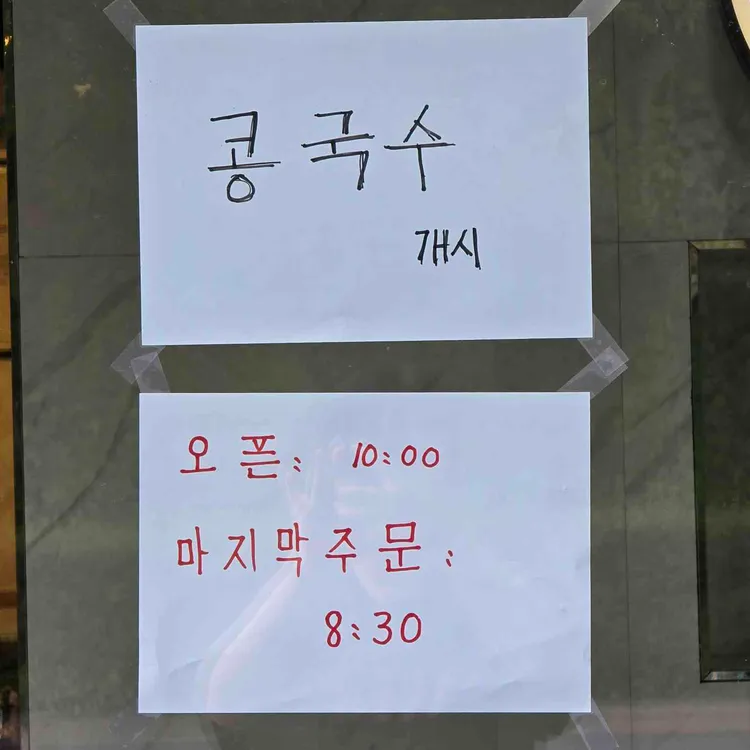 콩국수
개시
오픈: 10:00
마지막주문:
8:30